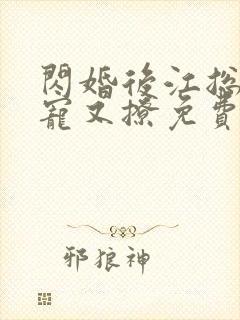 閃婚後江総
寵又撩免費
邪狼神